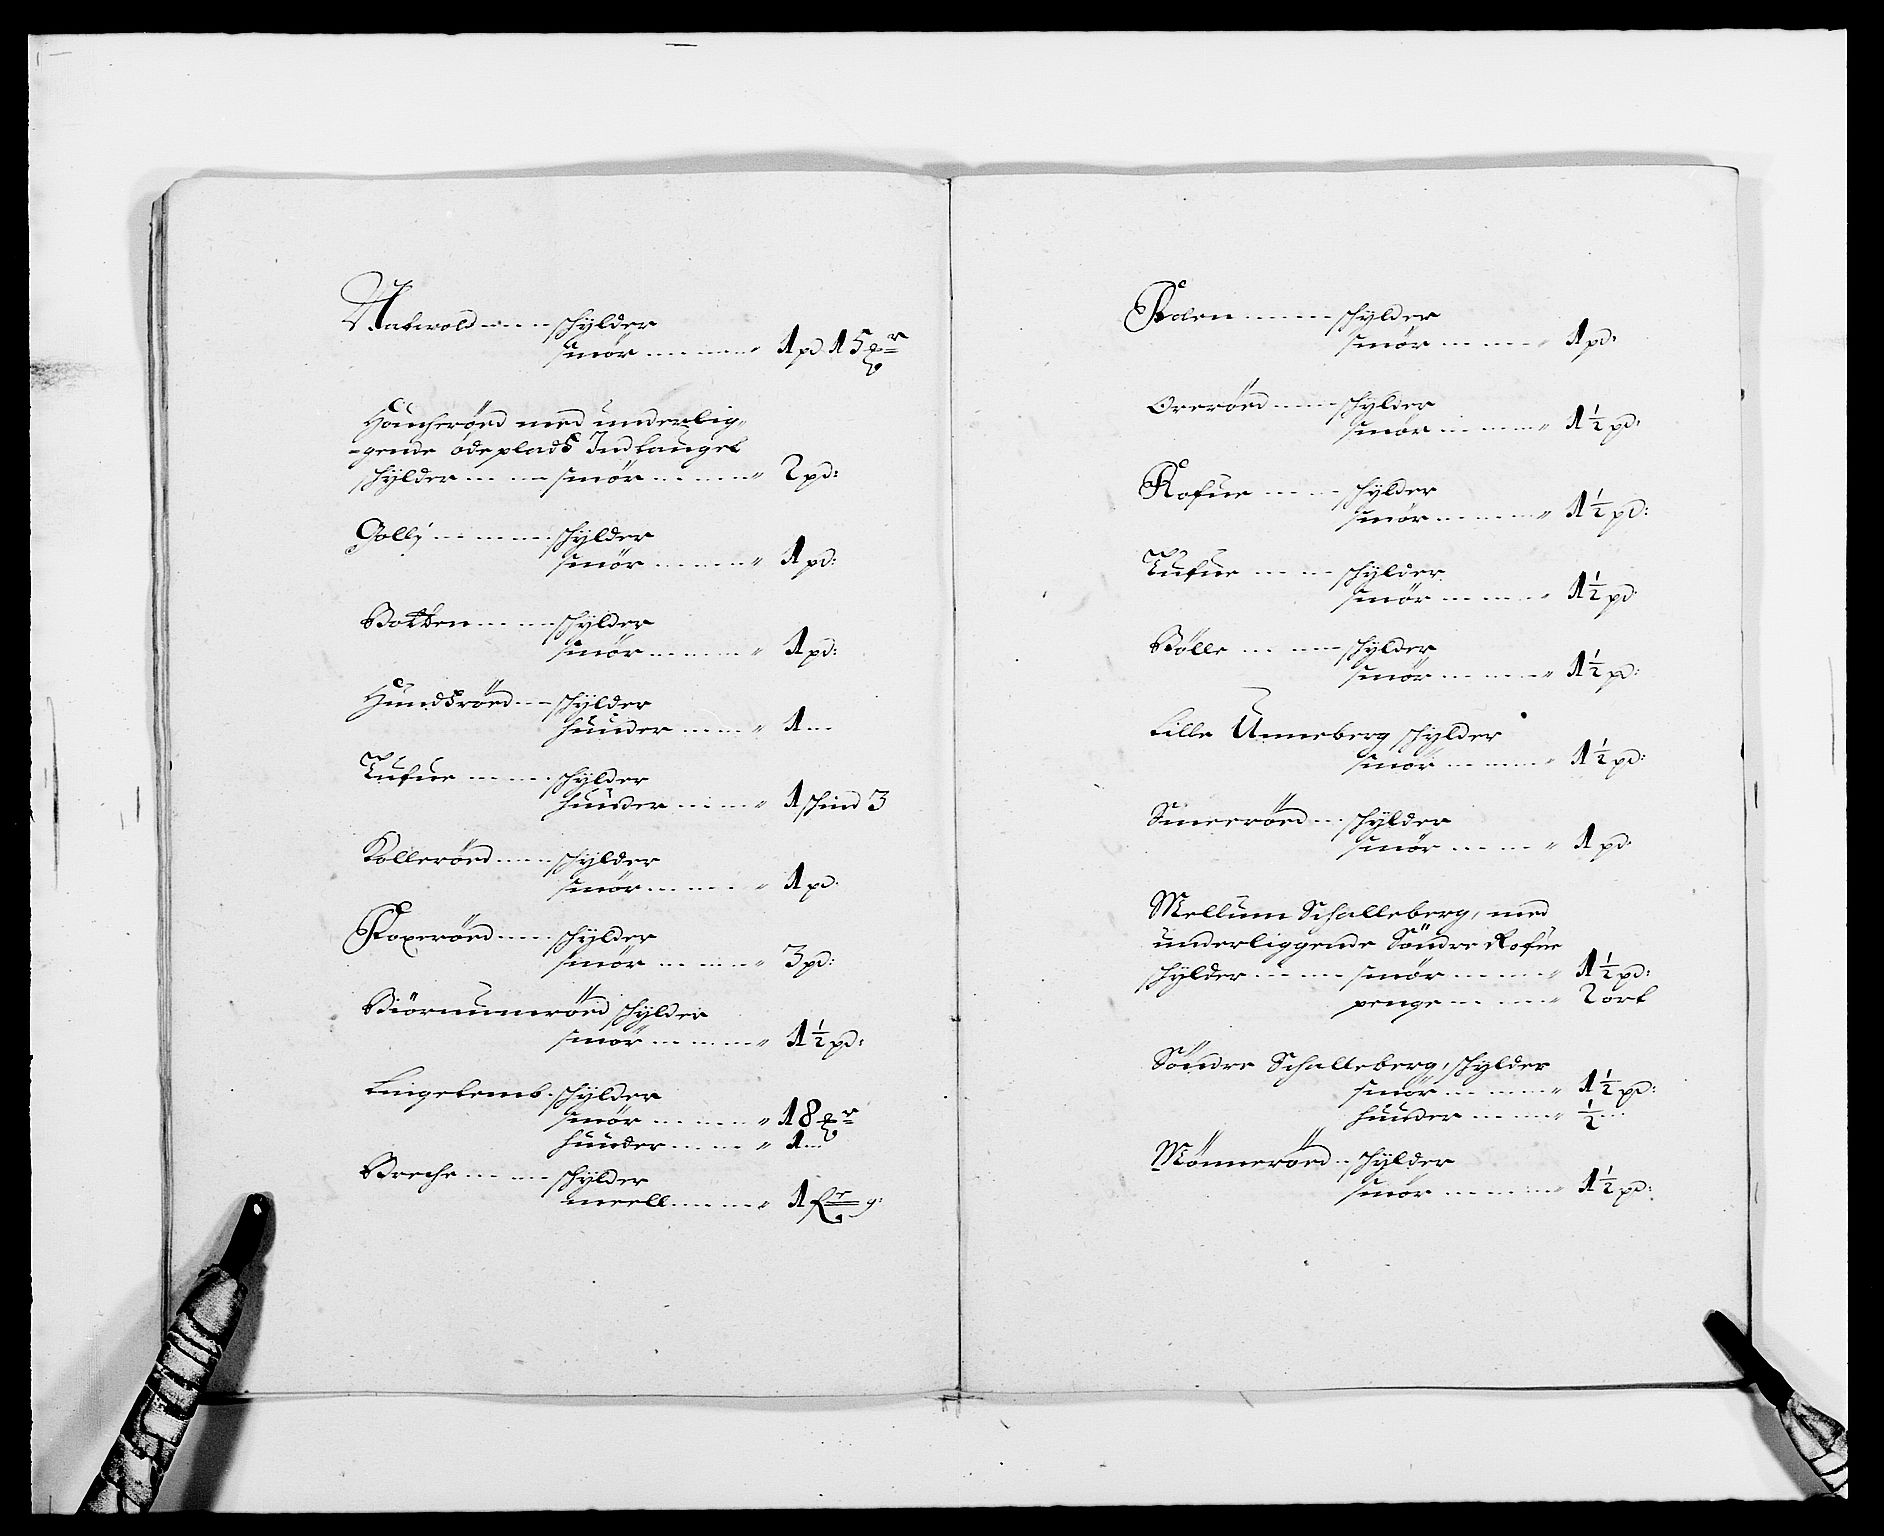 Natwold ---- schylder
smör ------ " 1 pd 15 ℔r
Hanseröed med underlig-
-gende ödeplads Indtauget
schylder ---- smör ------ " 2 pd:
Golli ------ schylder
smör ------ " 1 pd:
Botten ----- schylder
smör ------ " 1 pd:
Hundsröed --- schylder
huuder ----- " 1 --
Tufue ----- schylder
huuder ----- " 1 schind 3
Kolleröed ---- schylder
smör ------ " 1 pd:
Foxeröed ---- schylder
smör ------ " 3 pd:
Biörnumröed schylder
smör ------ " 1½ pd:
Lingelemb. schylder
smör ------ " 18 ℔r
huuder ----- " 1 --
Breche ----- schylder
meell ------ " 1
Folen ------ schylder
smör ------ " 1 pd:
Oreröed ---- schylder
smör ------ " 1½ pd:
Rofue ----- schylder
smör ------ " 1½ pd:
Tufue ----- schylder
smör ------ " 1½ pd:
Bölle ----- schylder
smör ------ " 1½ pd:
Lille Unneberg schylder
smör ------ " 1½ pd:
Smeröed --- schylder
smör ------ " 1 pd:
Mellum Schalleberg, med
underliggende Söndre Rofue
schylder ----- smör ------ " 1½ pd:
penge ----- " 2 ort
Söndre Schalleberg, schylder
smör ------ " 1½ pd:
huuder ----- " ½ --
Mönneröed -- schylder
smör ------ " 1½ pd: